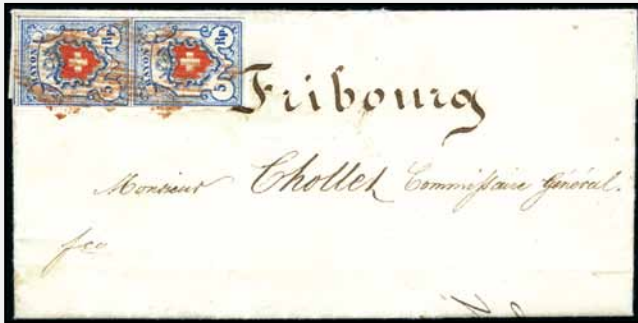 RAYON I. RAYON I.
5 Rp. 5 Rp.
Fribourg
Monsieur Chollet Commissaire Général.
fco